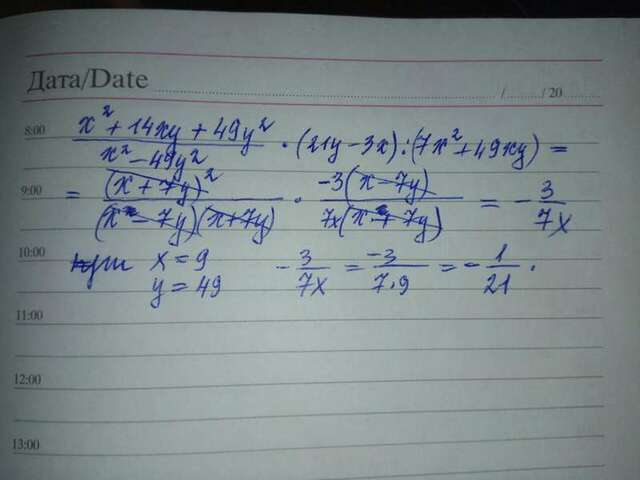 Дата/Date / / 20
8:00 x² + 14xy + 49y² / x² - 49y² · (21y - 3x) : (7x² + 49xy) =
9:00 = (x + 7y)² / (x - 7y)(x + 7y) · -3(x - 7y) / 7x(x + 7y) = - 3 / 7x
10:00 при x = 9 - 3 / 7x = -3 / 7·9 = - 1 / 21 .
y = 49
11:00
12:00
13:00